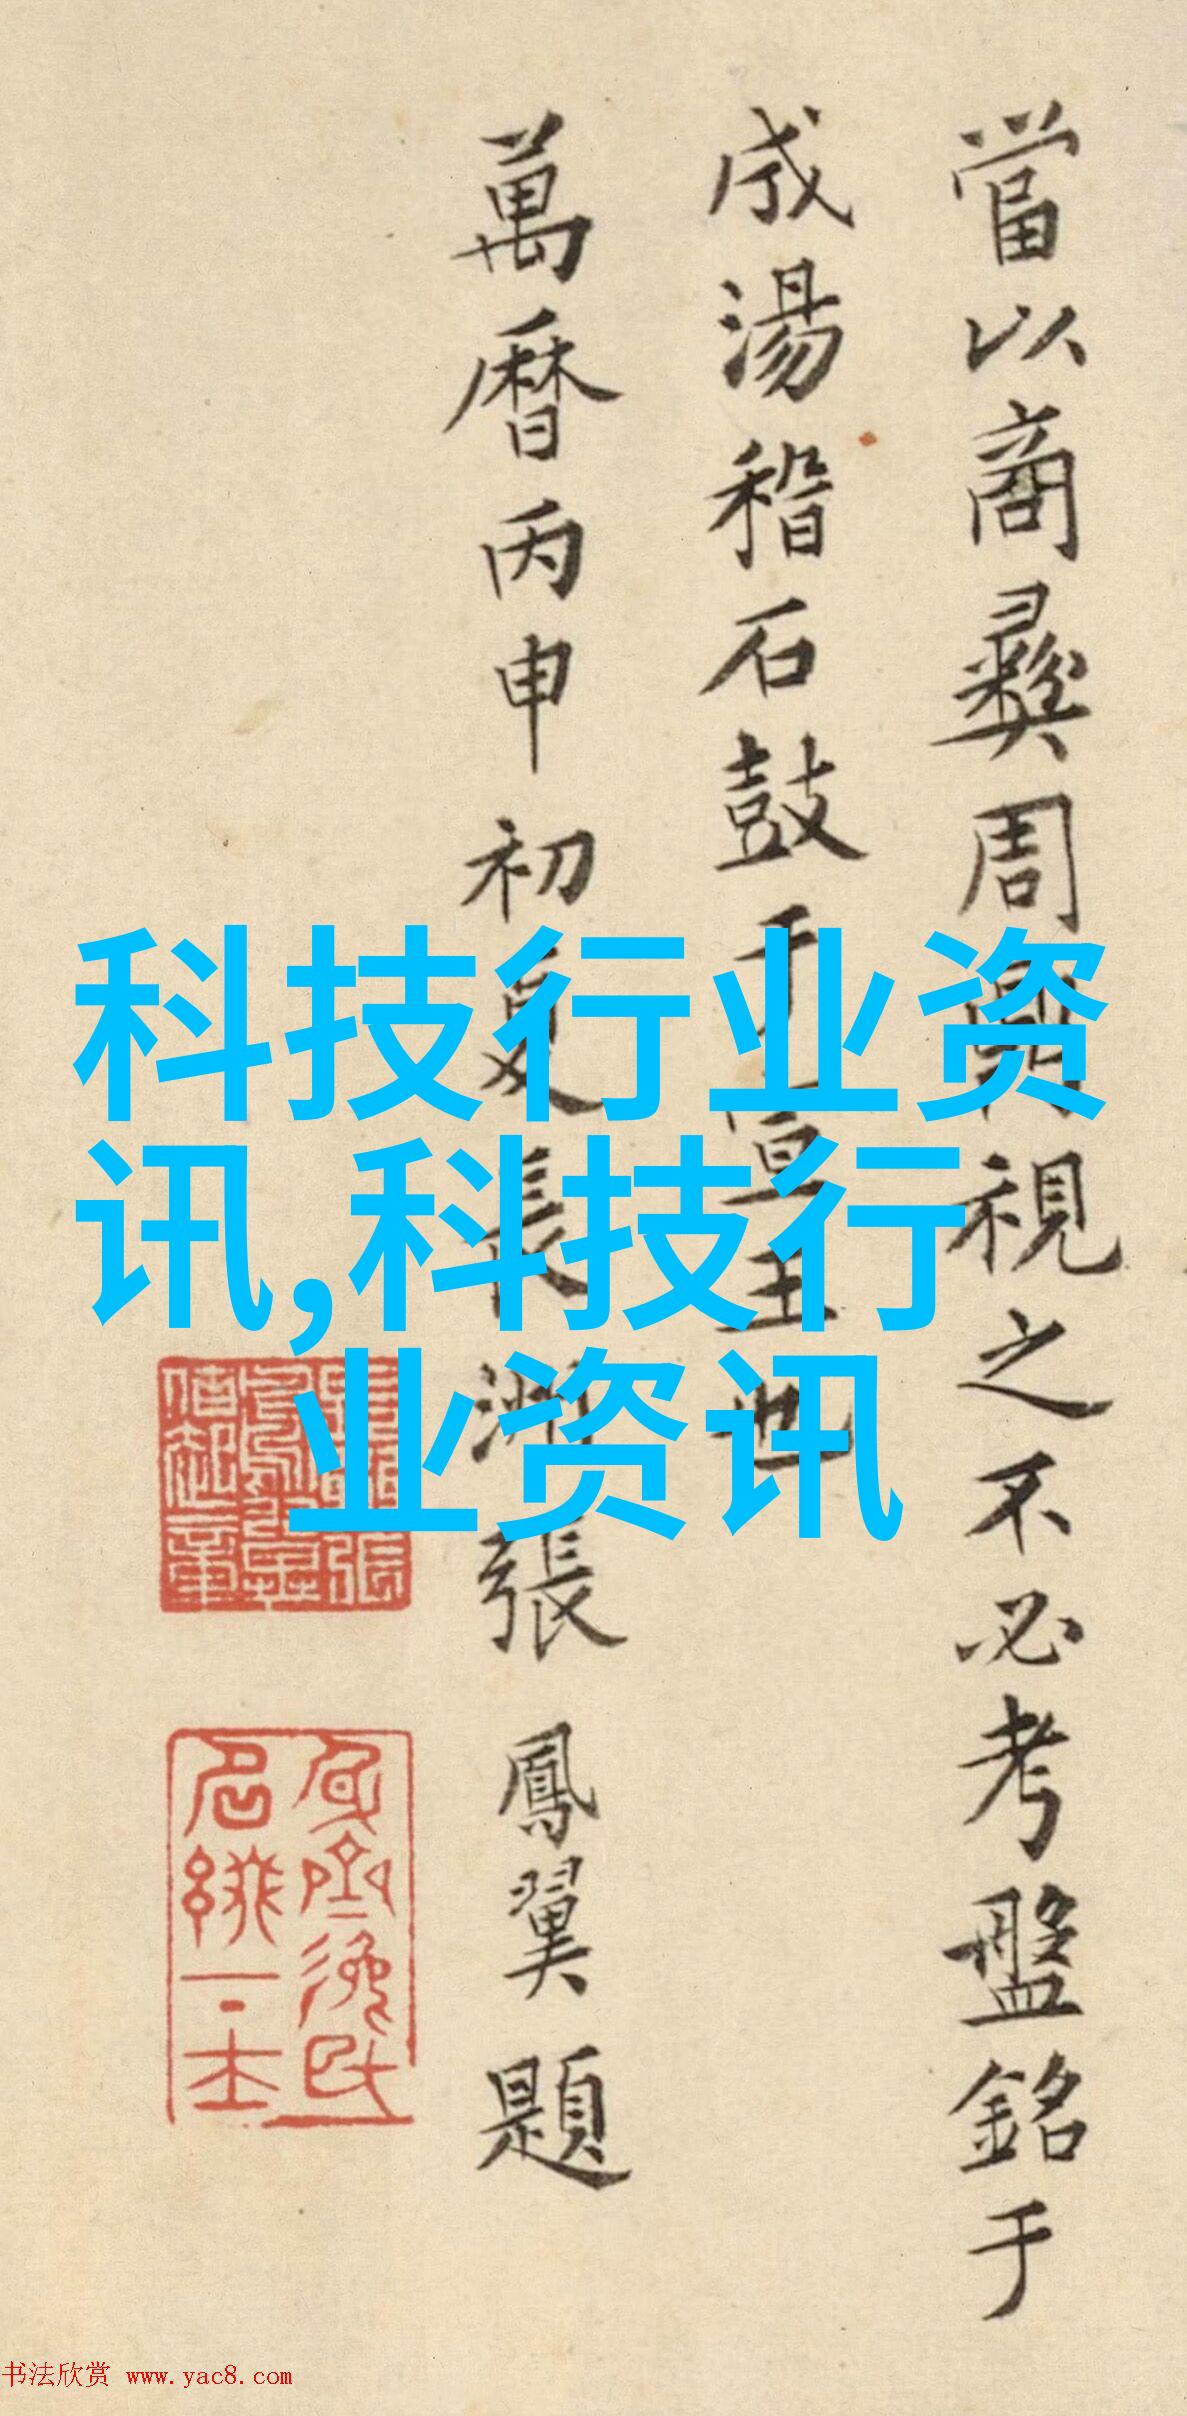 當以商彝周鼎視之不必考盤銘于
成湯稽石鼓于宣王也
萬曆丙申初夏長洲張鳳翼題
科技行业资
讯,科技行
业资讯
书法欣赏 www.yac8.com